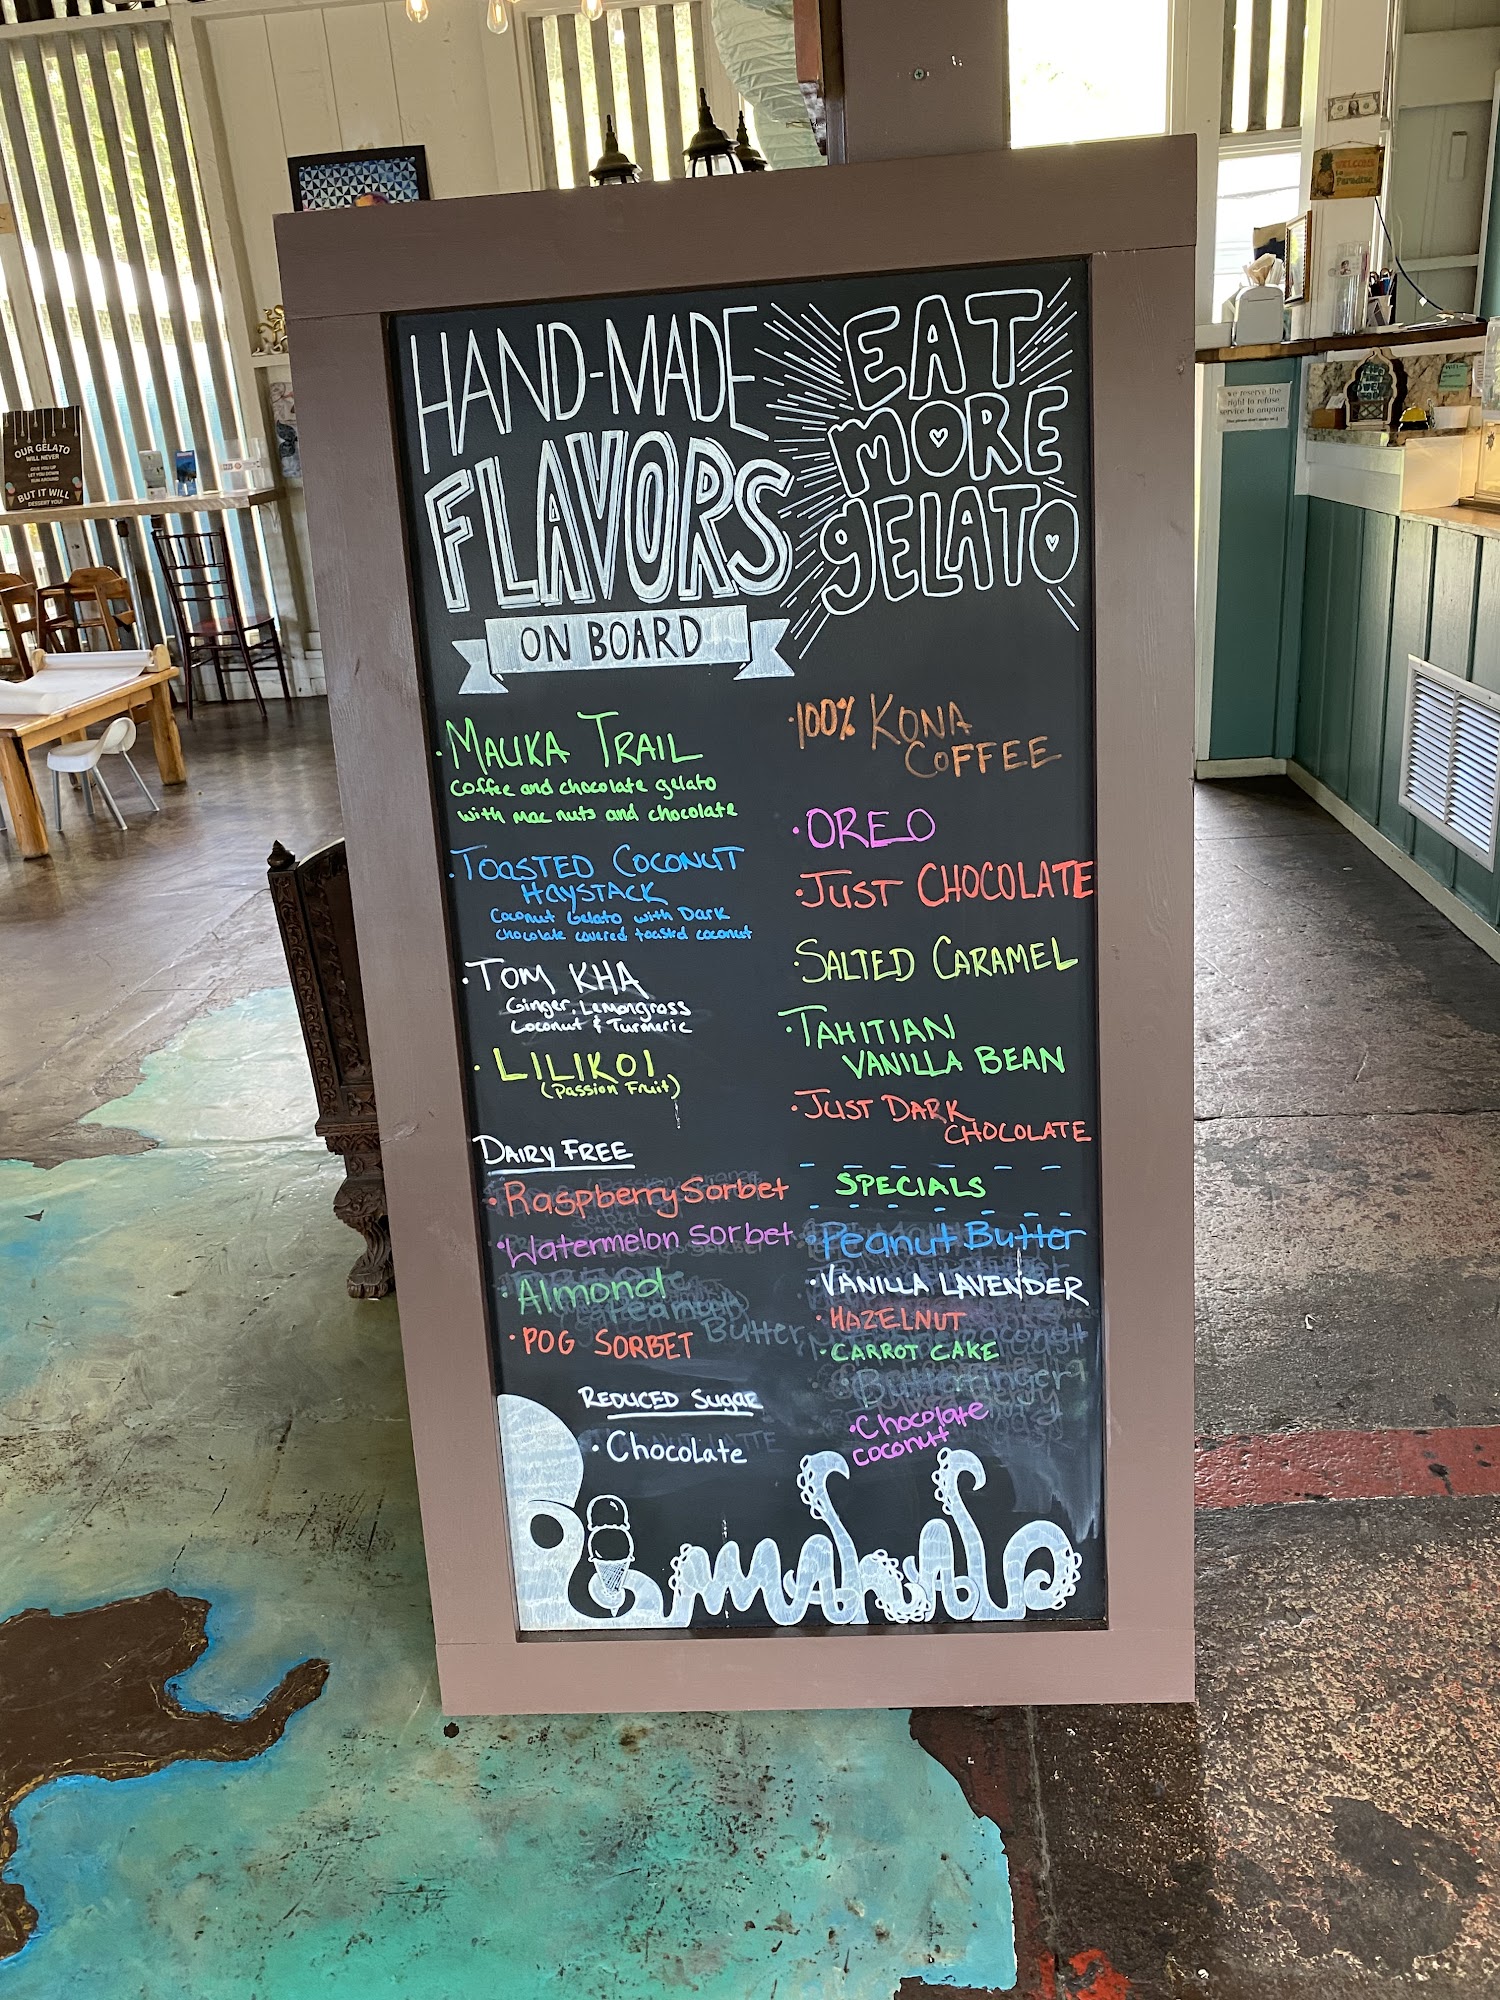 HAND-MADE
FLAVORS
ON BOARD
EAT
MORE
gELATO
·MAUKA TRAIL
Coffee and chocolate gelato
with mac nuts and chocolate
·TOASTED COCONUT
HAYSTACK
Coconut Gelato with Dark
chocolate covered toastd coconut
·TOM KHA
Ginger, Lemongrass
Coconut & Turmeric
·LILIKOI
(Passion Fruit)
DAIRY FREE
·Raspberry Sorbet
·Watermelon Sorbet
·Almond
·POG SORBET
REDUCED Sugar
·Chocolate
·100% KONA
COFFEE
·OREO
·JUST CHOCOLATE
·SALTED CARAMEL
·TAHITIAN
VANILLA BEAN
·JUST DARK
CHOCOLATE
SPECIALS
·Peanut Butter
·VANILLA LAVENDER
·HAZELNUT
·CARROT CAKE
·Butterfinger
·Chocolate
coconut
Peanut
Butter
OUR GELATO
WILL NEVER
GIVE YOU UP
LET YOU DOWN
RUN AROUND
BUT IT WILL
DESSERT YOU!
WELCOME
to
Paradise
we reserve the
right to refuse
service to anyone.